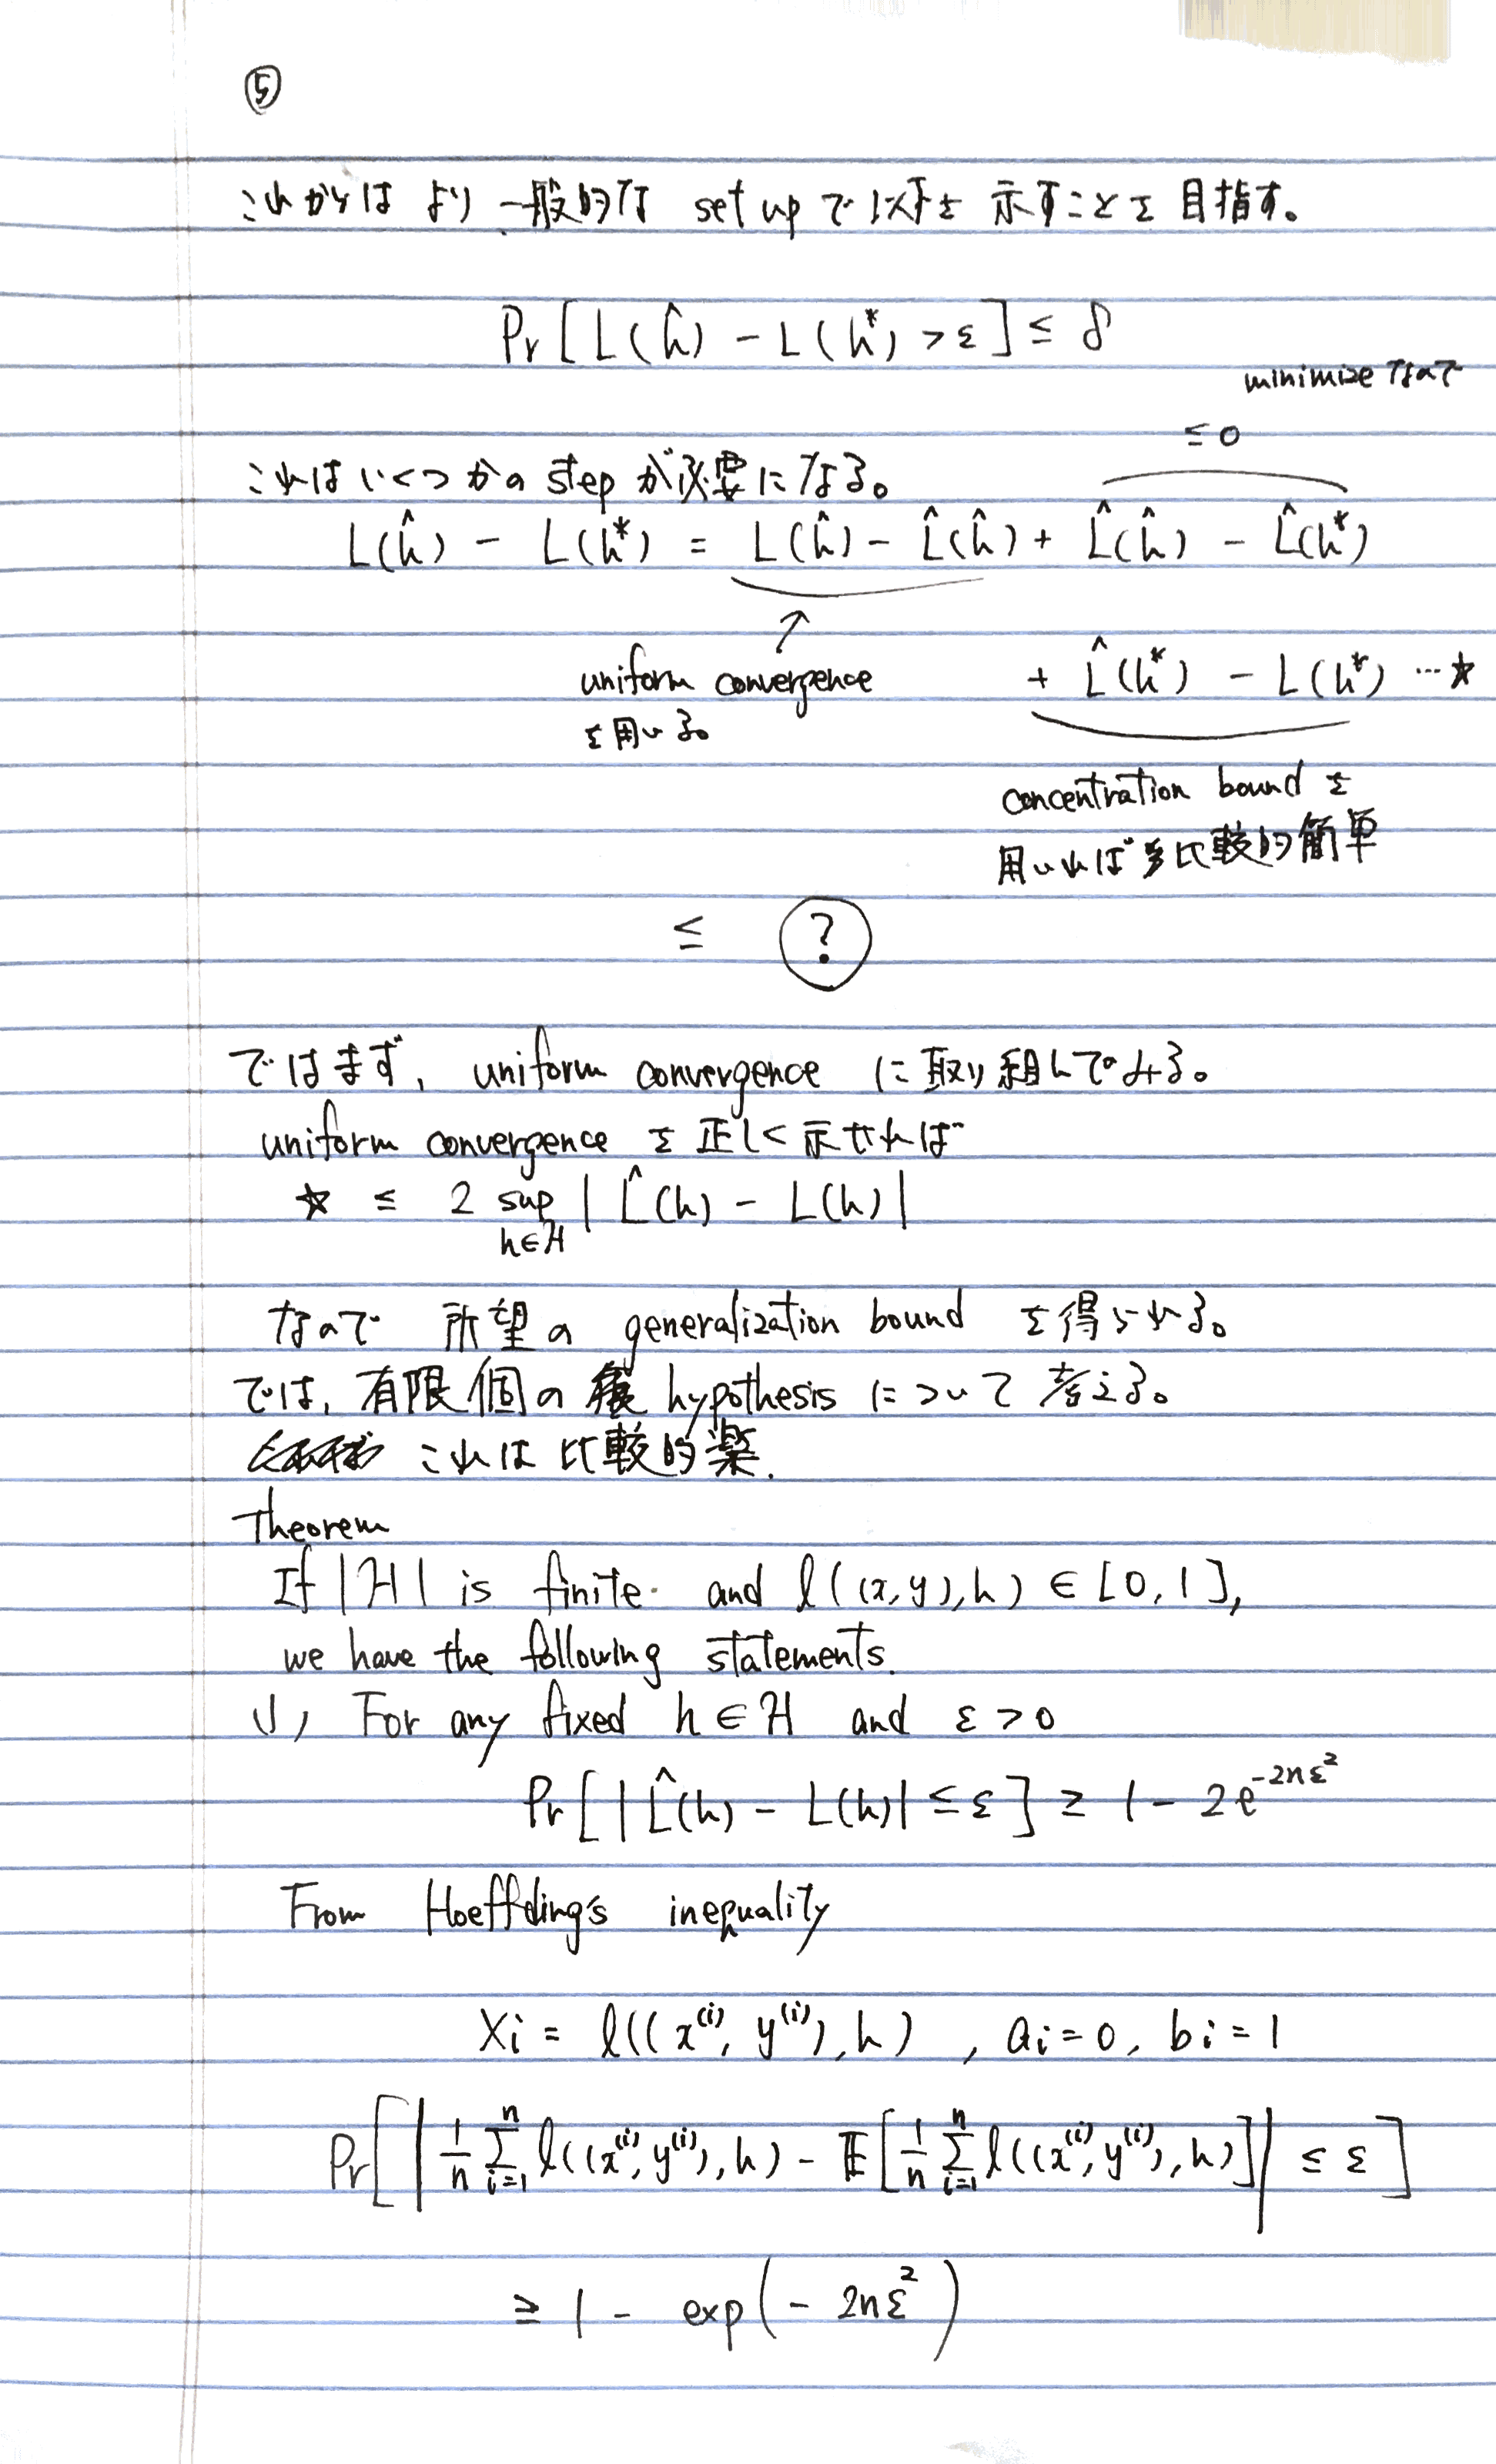 ⑤
これからは より 一般的な set up で 以下を 示すことを 目指す。
Pr[L(ĥ) - L(h*) > ε] ≤ δ
minimize なので
≤ 0
これはいくつかの step が必要になる。
L(ĥ) - L(h*) = L(ĥ) - L̂(ĥ) + L̂(ĥ) - L̂(h*)
↑
uniform convergence + L̂(h*) - L(h*) … ☆
を用いる。
concentration bound を
用いれば 比較的簡単
≤ ?
ではまず, uniform convergence に 取り組んでみる。
uniform convergence を 正しく 示せれば
☆ ≤ 2 sup | L̂(h) - L(h) |
h∈H
なので 所望の generalization bound を得られる。
では, 有限個の hypothesis について 考える。
これは 比較的楽.
Theorem
If |H| is finite and l((x,y),h) ∈ [0,1],
we have the following statements.
(1) For any fixed h ∈ H and ε > 0
Pr[|L̂(h) - L(h)| ≤ ε] ≥ 1 - 2e^{-2nε²}
From Hoeffding's inequality
Xi = l((x⁽ⁱ⁾, y⁽ⁱ⁾), h) , ai = 0, bi = 1
Pr[|1/n Σ_{i=1}^{n} l((x⁽ⁱ⁾, y⁽ⁱ⁾), h) - E[1/n Σ_{i=1}^{n} l((x⁽ⁱ⁾, y⁽ⁱ⁾), h)]| ≤ ε]
≥ 1 - exp(- 2nε²)